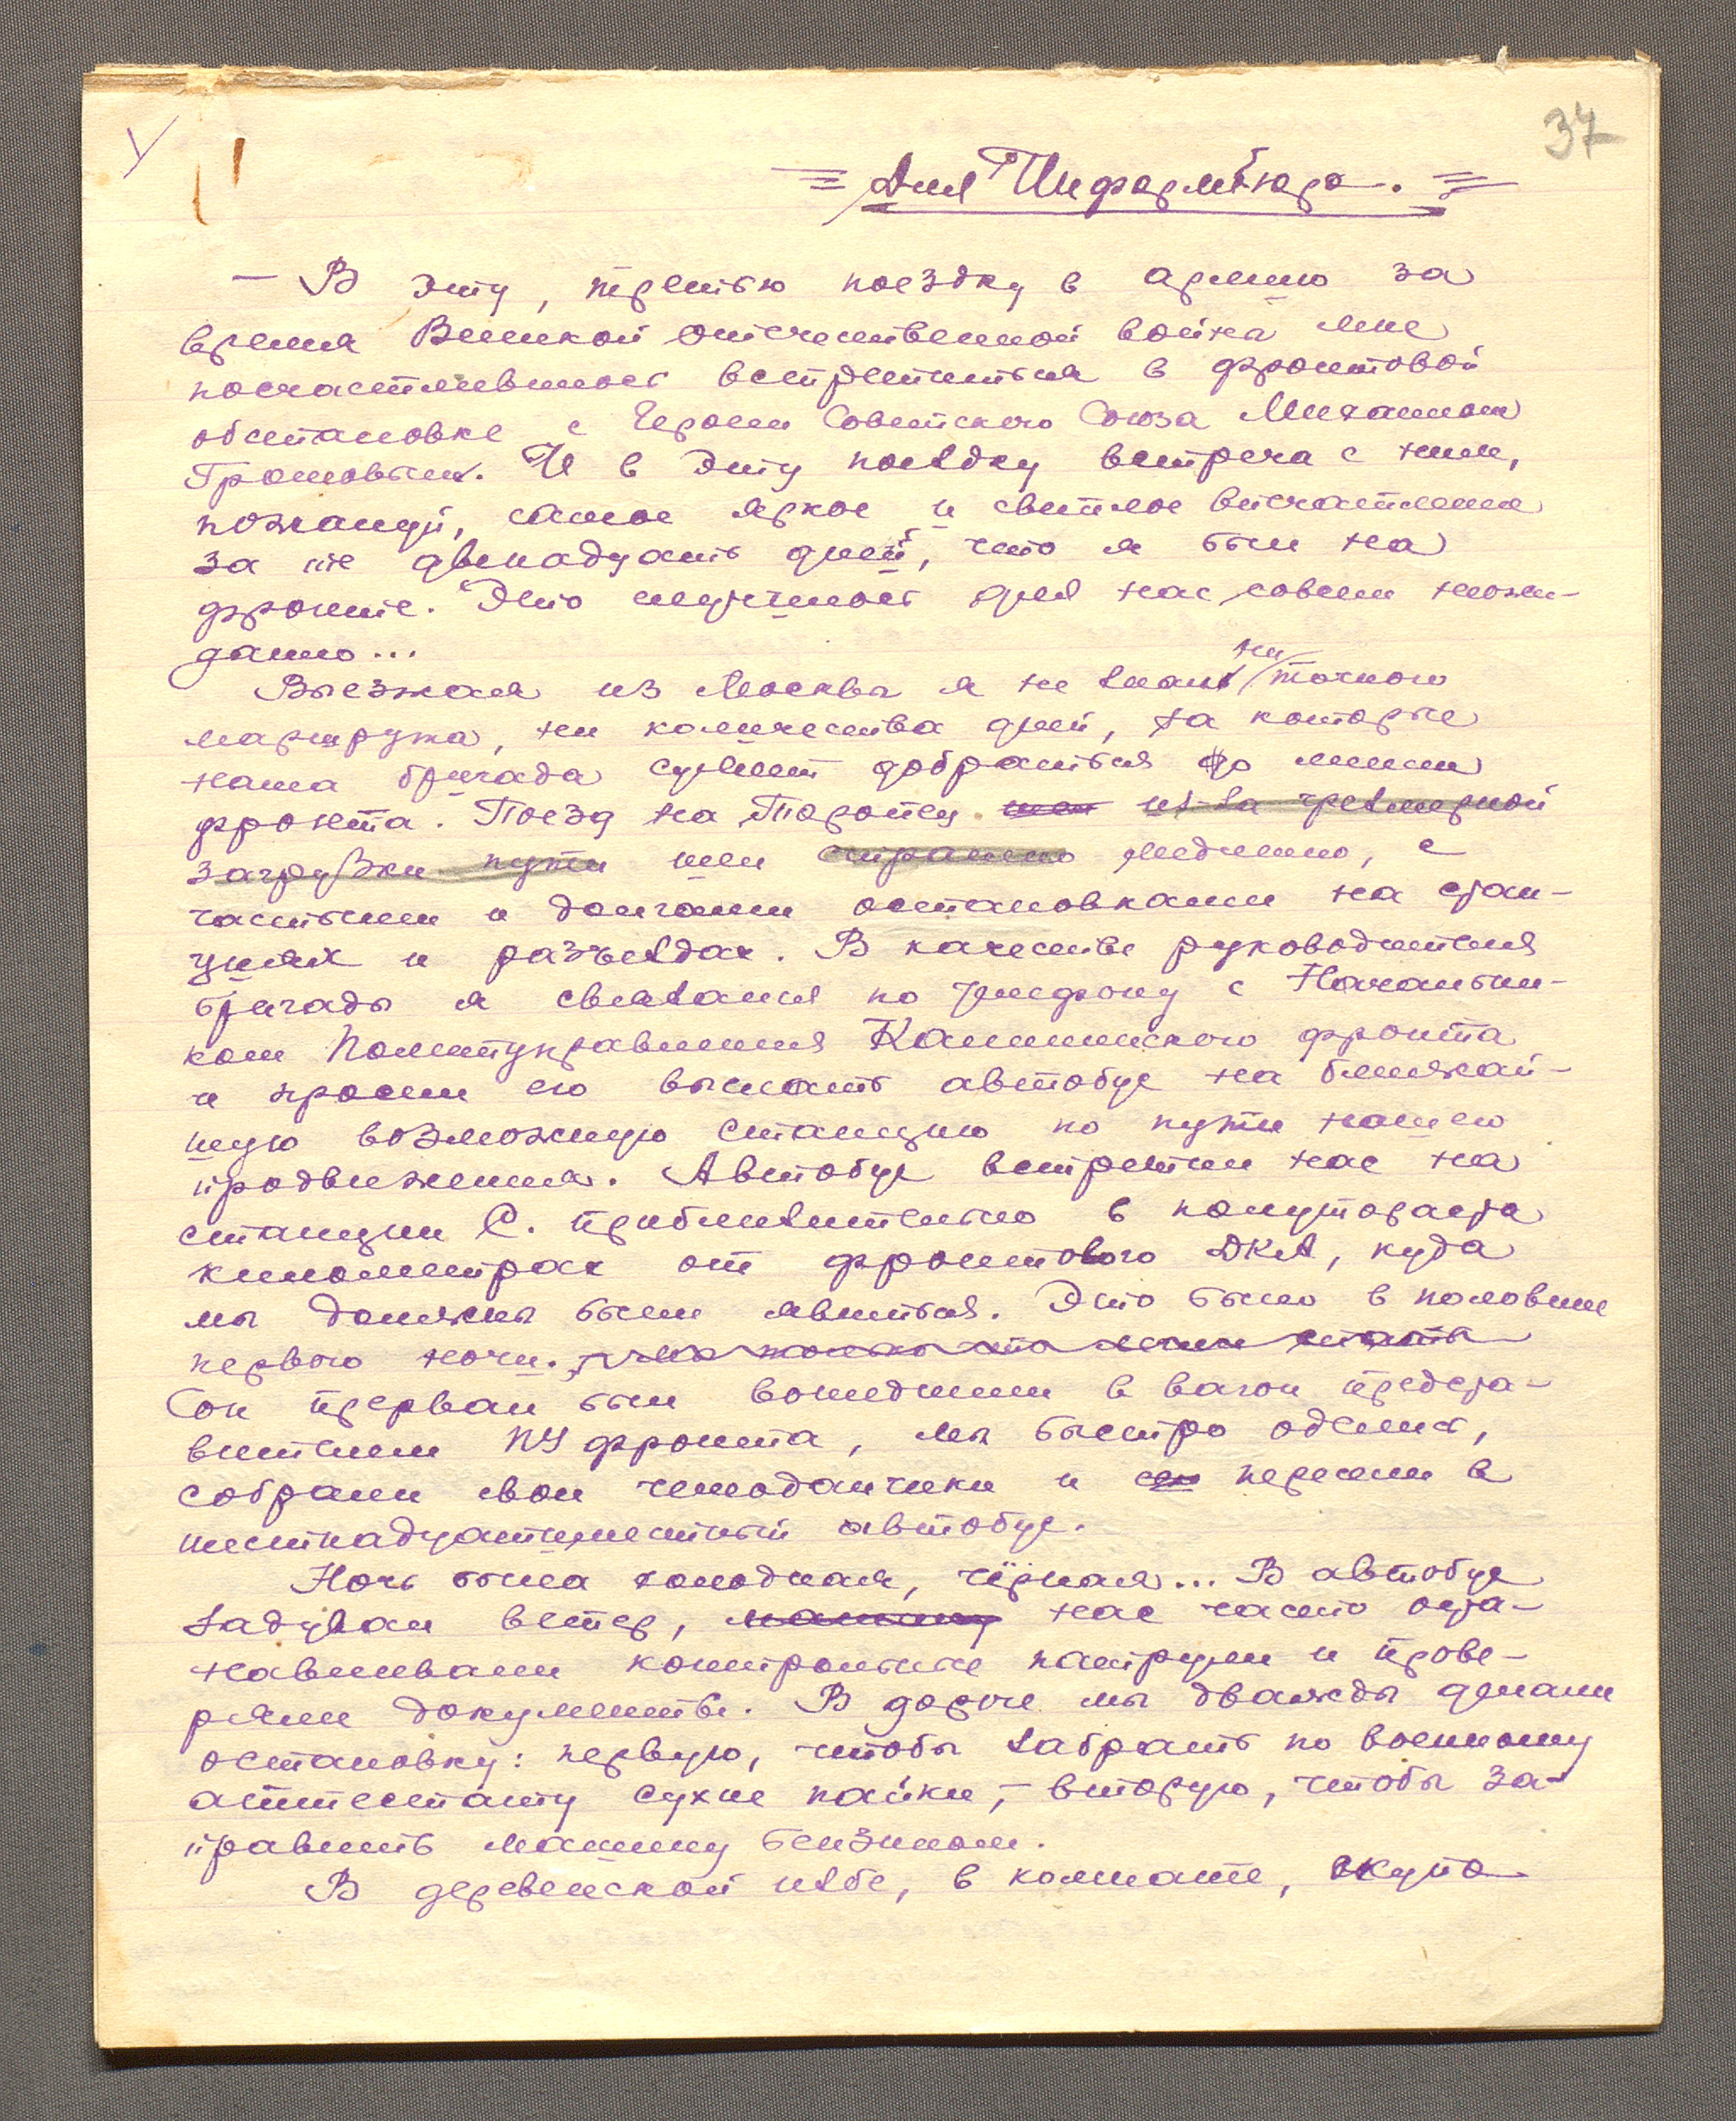 37
Для Информбюро.
— В эту, третью поездку в армию за
время Великой отечественной война мне
посчастливилось встретиться в фронтовой
обстановке с Героем Советского Союза Михаилом
Громовым. И в эту поездку встреча с ним,
пожалуй, самое яркое и светлое впечатление
за те двенадцать дней, что я был на
фронте. Это случилось для нас совсем неожи-
данно...
Выезжая из Москвы я не знал ни точного
маршрута, ни количества дней, за которые
наша бригада сумеет добраться до линии
фронта. Поезд на Торопец шел из-за чрезмерной
загрузки пути шел страшно медленно, с
частыми и долгими остановками на стан-
циях и разъездах. В качестве руководителя
бригады я связался по телефону с Начальни-
ком Политуправления Калининского фронта
и просил его выслать автобус на ближай-
шую возможную станцию по пути нашего
продвижения. Автобус встретил нас на
станции С. приблизительно в полутораста
километрах от фронтового ДКА, куда
мы должны были явиться. Это было в половине
первого ночи. Мы только что легли спать
Сон прерван был вошедшим в вагон предста-
вителем ПУ фронта, мы быстро оделись,
собрали свои чемоданчики и пересели в
шестнадцатиместный автобус.
Ночь была холодная, чёрная... В автобус
задувал ветер, машину нас часто оста-
навливали контрольные патрули и прове-
ряли документы. В дороге мы дважды делали
остановку: первую, чтобы забрать по военному
аттестату сухие пайки, — вторую, чтобы за-
править машину бензином.
В деревенской избе, в комнате, скупо